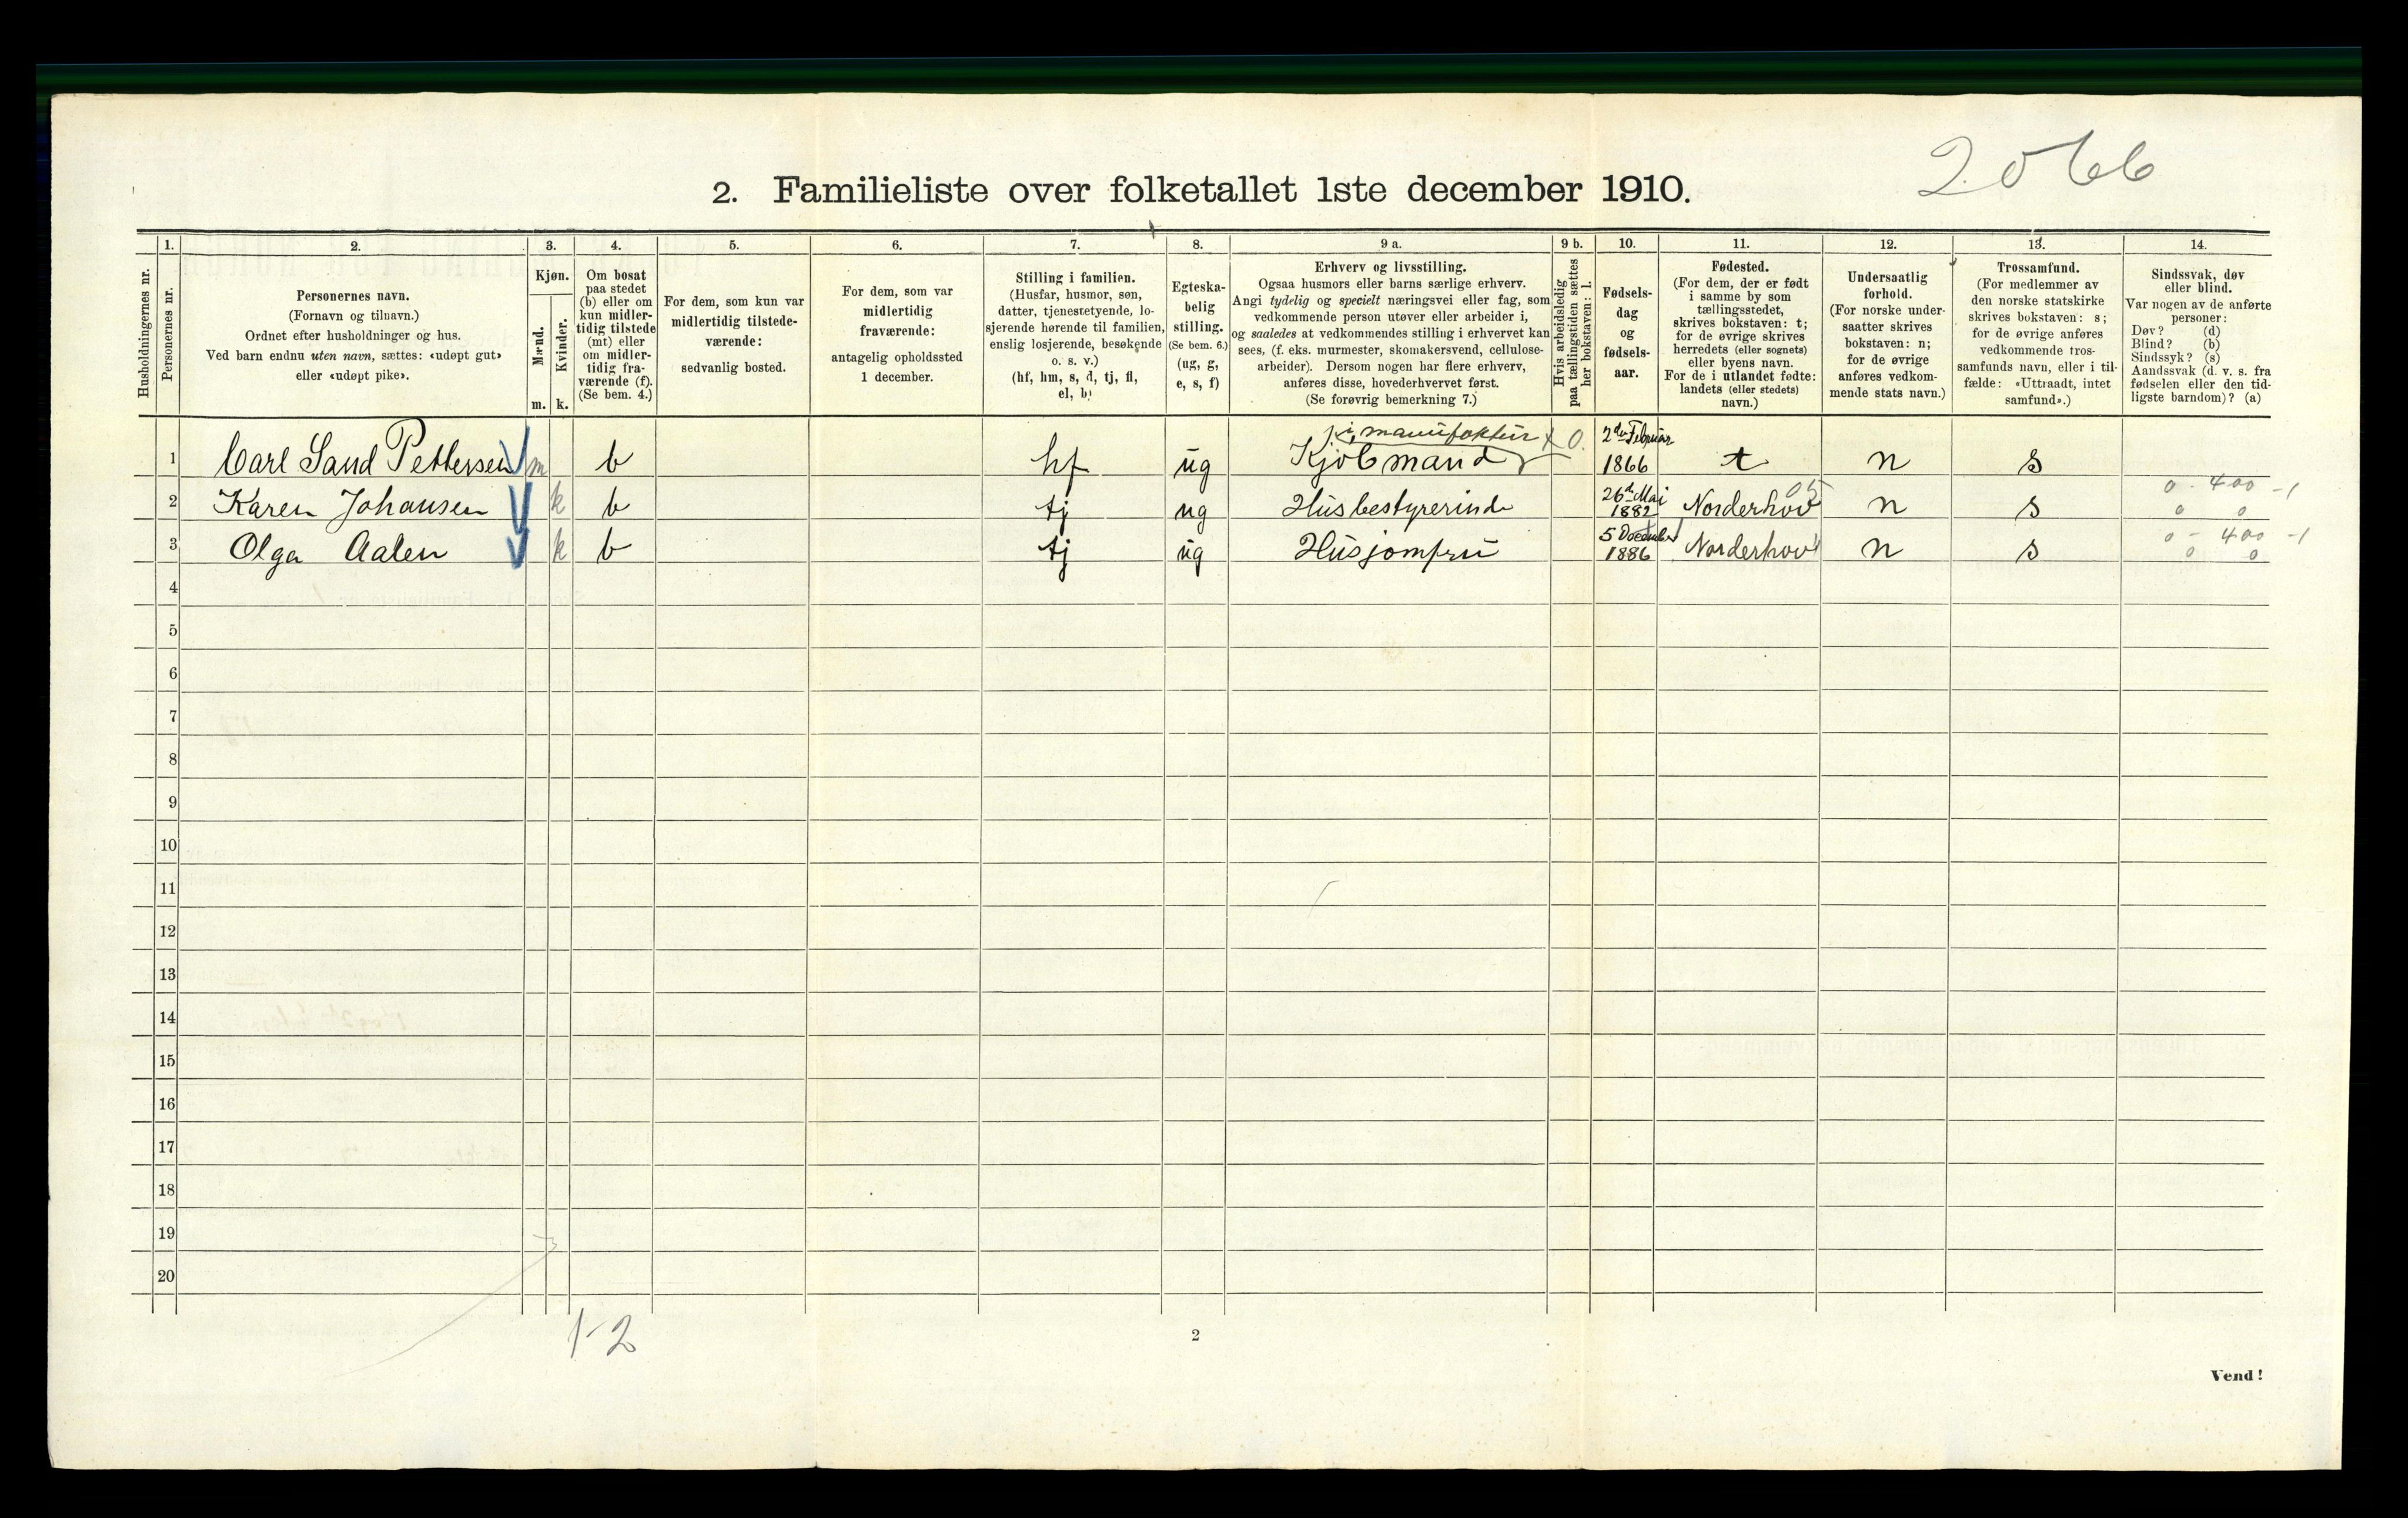 2066
2. Familieliste over folketallet 1ste december 1910.
1. 2. 3. 4. 5. 6. 7. 8. 9 a. 9 b. 10. 11. 12. 13. 14.
Husholdningernes nr.
Personernes nr.
Personernes navn.
(Fornavn og tilnavn.)
Ordnet efter husholdninger og hus.
Ved barn endnu uten navn, sættes: «udøpt gut»
eller «udøpt pike».
Kjøn.
Mænd.
Kvinder.
m. k.
Om bosat
paa stedet
(b) eller om
kun midler-
tidig tilstede
(mt) eller
om midler-
tidig fra-
værende (f).
(Se bem. 4.)
For dem, som kun var
midlertidig tilstede-
værende:
sedvanlig bosted.
For dem, som var
midlertidig
fraværende:
antagelig opholdssted
1 december.
Stilling i familien.
(Husfar, husmor, søn,
datter, tjenestetyende, lo-
sjerende hørende til familien,
enslig losjerende, besøkende
o. s. v.)
(hf, hm, s, d, tj, fl,
el, b)
Egteska-
belig
stilling.
(Se bem. 6.)
(ug, g,
e, s, f)
Erhverv og livsstilling.
Ogsaa husmors eller barns særlige erhverv.
Angi tydelig og specielt næringsvei eller fag, som
vedkommende person utøver eller arbeider i,
og saaledes at vedkommendes stilling i erhvervet kan
sees, (f. eks. murmester, skomakersvend, cellulose-
arbeider). Dersom nogen har flere erhverv,
anføres disse, hovederhvervet først.
(Se forøvrig bemerkning 7.)
Hvis arbeidsledig
paa tællingstiden sættes
her bokstaven: l.
Fødsels-
dag
og
fødsels-
aar.
Fødested.
(For dem, der er født
i samme by som
tællingsstedet,
skrives bokstaven: t;
for de øvrige skrives
herredets (eller sognets)
eller byens navn.
For de i utlandet fødte:
landets (eller stedets)
navn.)
Undersaatlig
forhold.
(For norske under-
saatter skrives
bokstaven: n;
for de øvrige
anføres vedkom-
mende stats navn.)
Trossamfund.
(For medlemmer av
den norske statskirke
skrives bokstaven: s;
for de øvrige anføres
vedkommende tros-
samfunds navn, eller i til-
fælde: «Uttraadt, intet
samfund».)
Sindssvak, døv
eller blind.
Var nogen av de anførte
personer:
Døv? (d)
Blind? (b)
Sindssyk? (s)
Aandssvak (d. v. s. fra
fødselen eller den tid-
ligste barndom)? (a)
i manufaktur
1 Carl Sand Pettersen m b hf ug Kjøbmand 0. 2den Februar 1866 t n s
2 Karen Johansen k b tj ug Husbestyrerinde 26de Mai 1882 Norderhov 05 n s 0 - 400 -1
0 0
3 Olga Aalen k b tj ug Husjomfru 5 December 1886 Norderhov n s 0 - 400 -1
0 0
4
5
6
7
8
9
10
11
12
13
14
15
16
17
18
19
20
1-2
2
Vend!